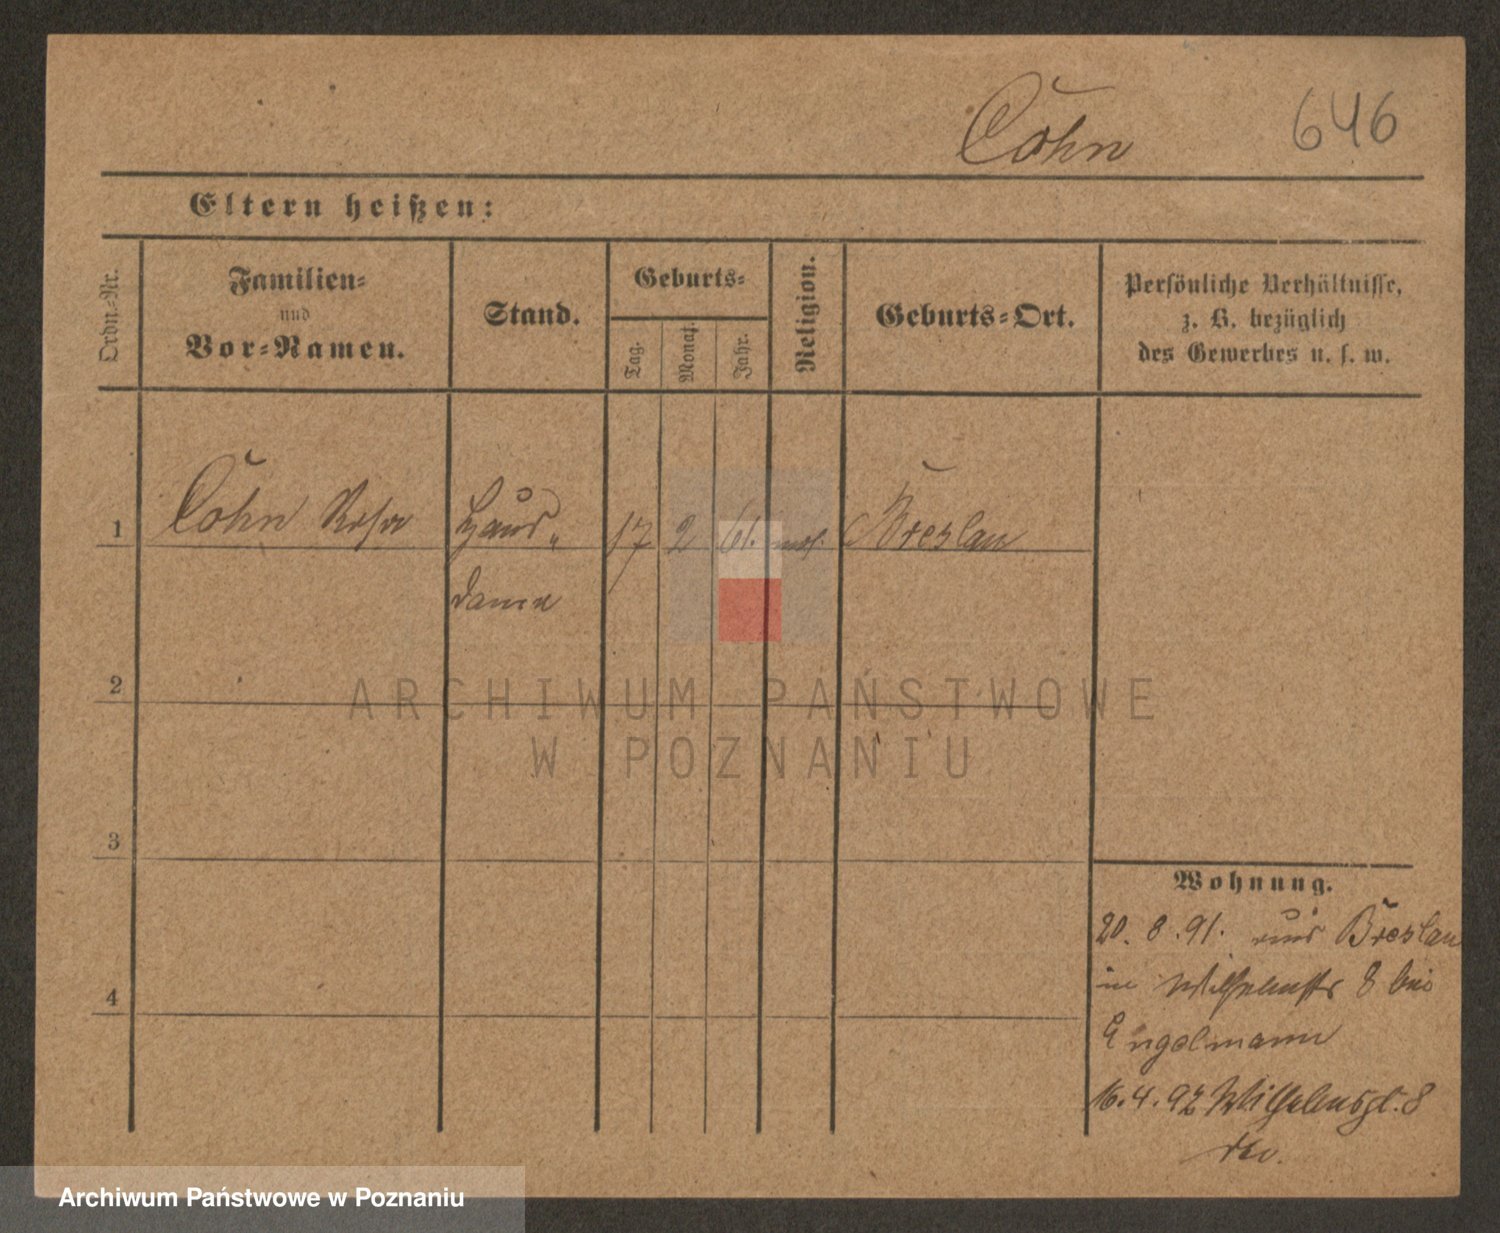 Cohn 646
Eltern heißen:
Ordn.-Nr.
Familien-
und
Vor-Namen.
Stand.
Geburts-
Tag.
Monat.
Jahr.
Religion.
Geburts-Ort.
Persönliche Verhältnisse,
z. B. bezüglich
des Gewerbes u. s. w.
1 Cohn Rosa Haus- 17 2 61. mos. Breslau
dame
2
ARCHIWUM PAŃSTWOWE
W POZNANIU
3
Wohnung.
20. 8. 91. aus Breslau
in Wilhelmstr 8 bei
4
Engelmann
16. 4. 92 Wilhelmspl. 8
Archiwum Państwowe w Poznaniu